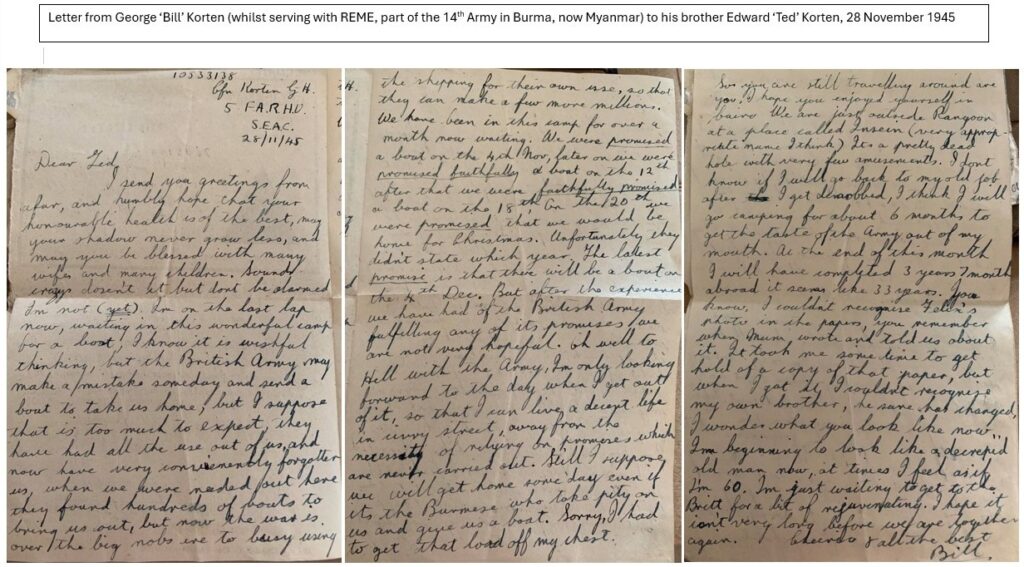 Letter from George ‘Bill’ Korten (whilst serving with REME, part of the 14th Army in Burma, now Myanmar) to his brother Edward ‘Ted’ Korten, 28 November 1945
10533138
Cfn Korten G H.
5 F.A.R.H.U.
S.E.A.C.
28/11/45
Dear Ted,
I send you greetings from
afar, and humbly hope that your
honourable health is of the best, may
your shadow never grow less, and
may you be blessed with many
wifes and many children. Sounds
crazy dosen't it but dont be alarmed
I'm not (yet). Im on the last lap
now, waiting in this wonderful camp
for a boat, I know it is wishful
thinking, but the British Army may
make a mistake someday and send a
boat to take us home, but I suppose
that is too much to expect, they
have had all the use out of us, and
now have very conveniently forgotten
us, when we were needed out here
they found hundreds of boats to
bring us out, but now the war is
over the big nobs are to busy using
the shipping for their own use, so that
they can make a few more millions.
We have been in this camp for over a
month now waiting. We were promised
a boat on the 4th Nov, later on we were
promised faithfully a boat on the 12th
after that we were faithfully promised
a boat on the 18th, On the 20th we
were promised that we would be
home for Christmas. Unfortunately they
didn't state which year, The latest
promise is that there will be a boat on
the 4th Dec. But after the experience
we have had of the British Army
fulfilling any of its promises, we
are not very hopeful. oh well to
Hell with the Army, Im only looking
forward to the day when I get out
of it, so that I can live a decent life
in civvy street, away from the
necessity of relying on promises which
are never carried out. Still I suppose
we will get home some day even if
its the Burmese who take pity on
us and give us a boat. Sorry, I had
to get that load off my chest.
So you are still travelling around are
you, I hope you enjoyed yourself in
Cairo. We are just outside Rangoon
at a place called Insein (very approp-
riate name I think) Its a pretty dead
hole with very few amusements. I dont
know if I will go back to my old job
after I get demobbed, I think I will
go camping for about 6 months to
get the taste of the Army out of my
mouth. At the end of this month
I will have completed 3 years 7 month
abroad it seems like 33 years. You
know, I couldn't recognise Felix's
photo in the papers, you remember
when Mum wrote and told us about
it. It took me some time to get
hold of a copy of that paper, but
when I got it, I couldn't recognise
my own brother, he sure has changed.
I wonder what you look like now.
I'm beginning to look like a decrepid
old man now, at times I feel as if
I'm 60. Im just waiting to get to the
for a bit of rejuvenating. I hope it
isnt very long before we are together
again. Cheerio & all the best
Bill.